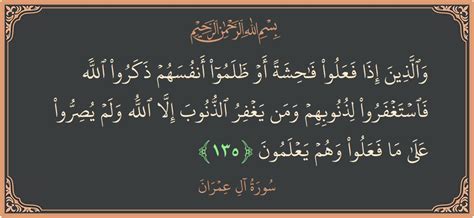 بِسْمِ اللَّهِ الرَّحْمَٰنِ الرَّحِيمِ
وَالَّذِينَ إِذَا فَعَلُوا فَاحِشَةً أَوْ ظَلَمُوا أَنْفُسَهُمْ ذَكَرُوا اللَّهَ
فَاسْتَغْفَرُوا لِذُنُوبِهِمْ وَمَن يَغْفِرُ الذُّنُوبَ إِلَّا اللَّهُ وَلَمْ يُصِرُّوا
عَلَىٰ مَا فَعَلُوا وَهُمْ يَعْلَمُونَ ﴿١٣٥﴾
سُورَةُ آلِ عِمْرَانَ